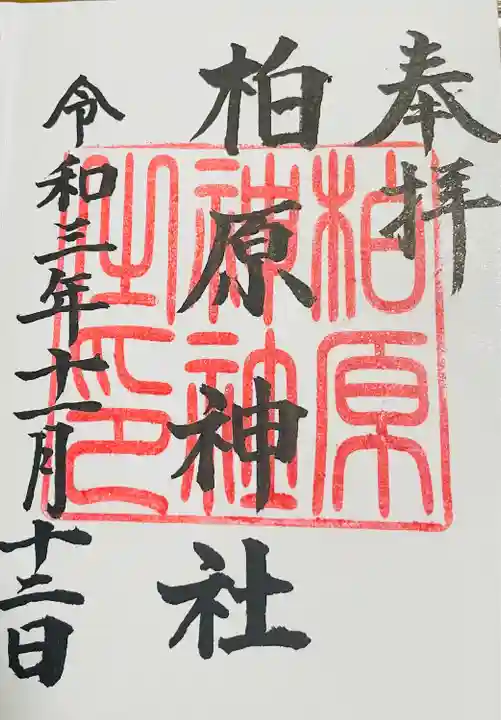 奉拝
柏原神社
柏原
神社
之印
令和三年十一月十二日